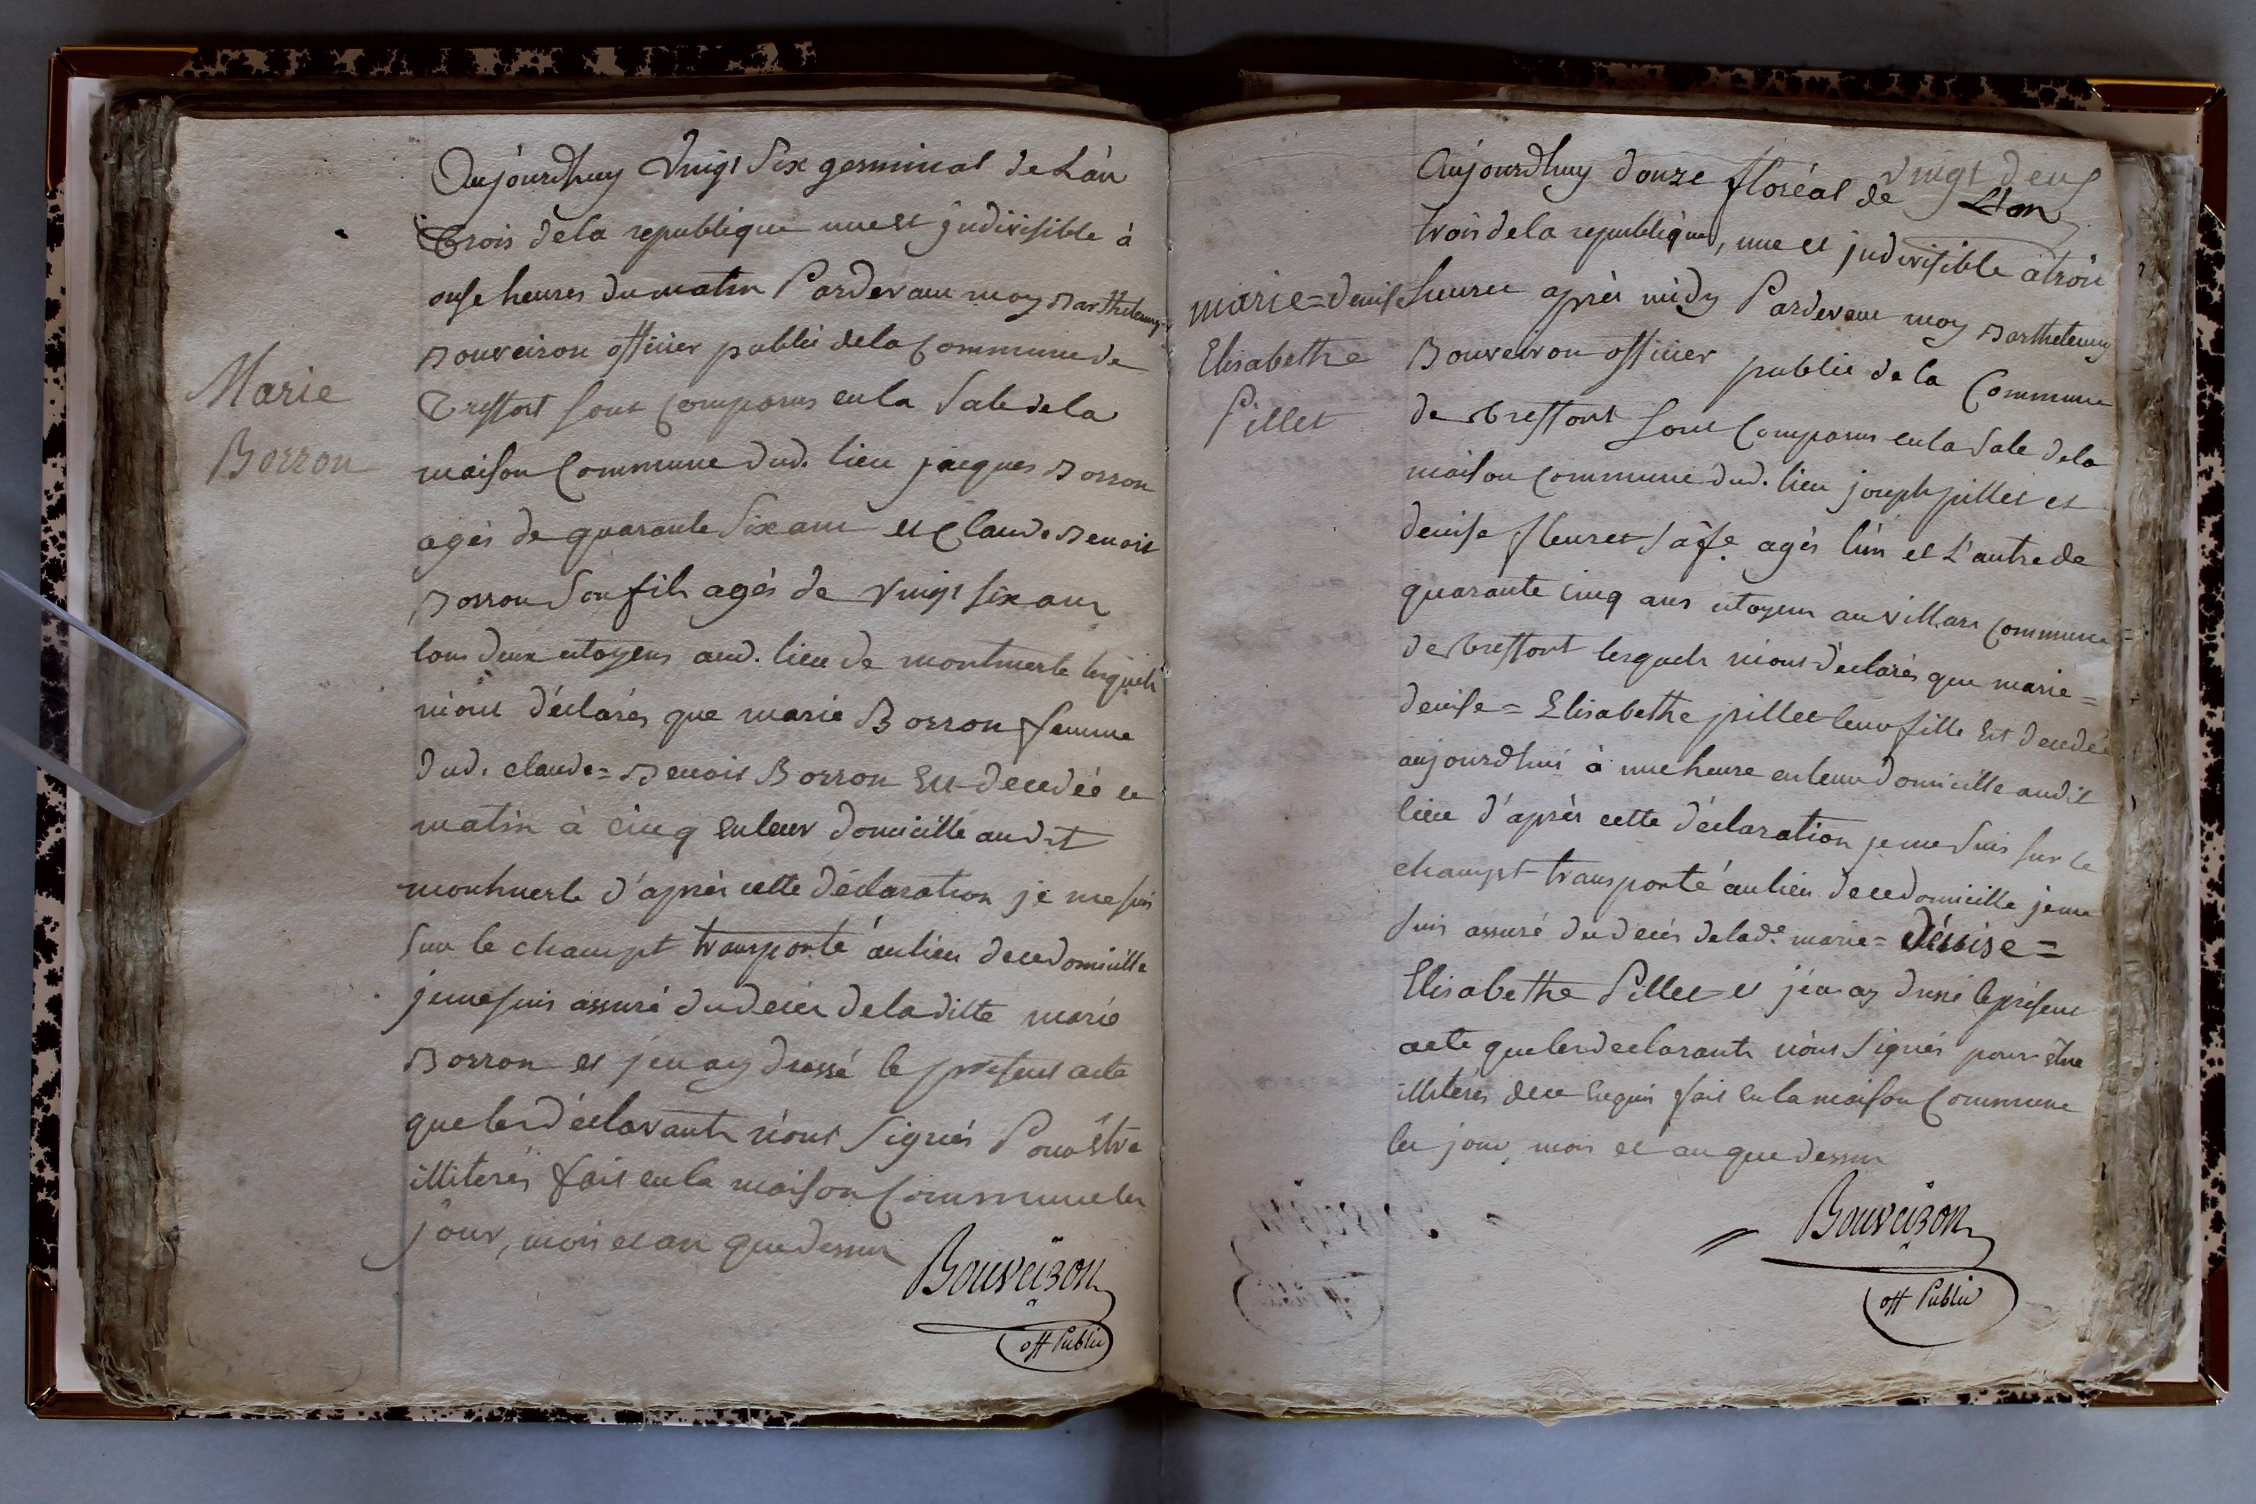 Aujourdhuy Vingt Six germinal de Lán
Trois de la republique une et indivisible à
onse heures du matin Pardevant moy Barthelemy
Bouveiron officier public de la Commune de
Treffort sont Comparus en la Sale de la
Marie
Borron
maison Commune dud. lieu jacques Borron
agés de quarante Six ans et Claude Benoit
Borron Son fils agés de Vingt six ans
tous deux citoyens aud. lieu de montmerle lesquels
m'ont déclarés que marie Borron femme
dud. claude=Benoit Borron Est decedéé ce
matin à cinq en leur domicille audit
montmerle d'après cette déclaration je me suis
sur le champt transporté au lieu de ce domicille
je me suis assuré du decés de la ditte marie
Borron et j'en ay dressé le présent acte
que les déclarants n'ont Signés Pour être
illiterés fait en la maison Commune les
jour, mois et an que dessus
Bouveiron
off Public
vingt deux
Aujourdhuy douze floréal de L'an
trois de la republique, une et indivisible à trois
marie=denise
Elisabethe
Pillet
heures après midy Pardevant moy Barthelemy
Bouveiron officier public de la Commune
de treffort Sont Comparus en la Sale de la
maison Commune dud. lieu joseph pillet et
denise fleuret Sa fe. agés l'un et L'autre de
quarante cinq ans citoyens au villars Commune=
de treffort lesquels m'ont déclarés que marie=
denise=Elisabethe pillet leur fille Est decedée
aujourdhui à une heure en leur domicille audit
lieu d'après cette déclaration je me suis sur le
champt transporté au lieu de ce domicille je me
suis assuré du decés de lade. marie=Dénise=
Elisabethe Pillet et j'en ay dressé le présent
acte que les declarants n'ont Signés pour être
illiterés de ce Enquis fait en la maison Commune
les jour, mois et an que dessus
Bouveiron
off Public